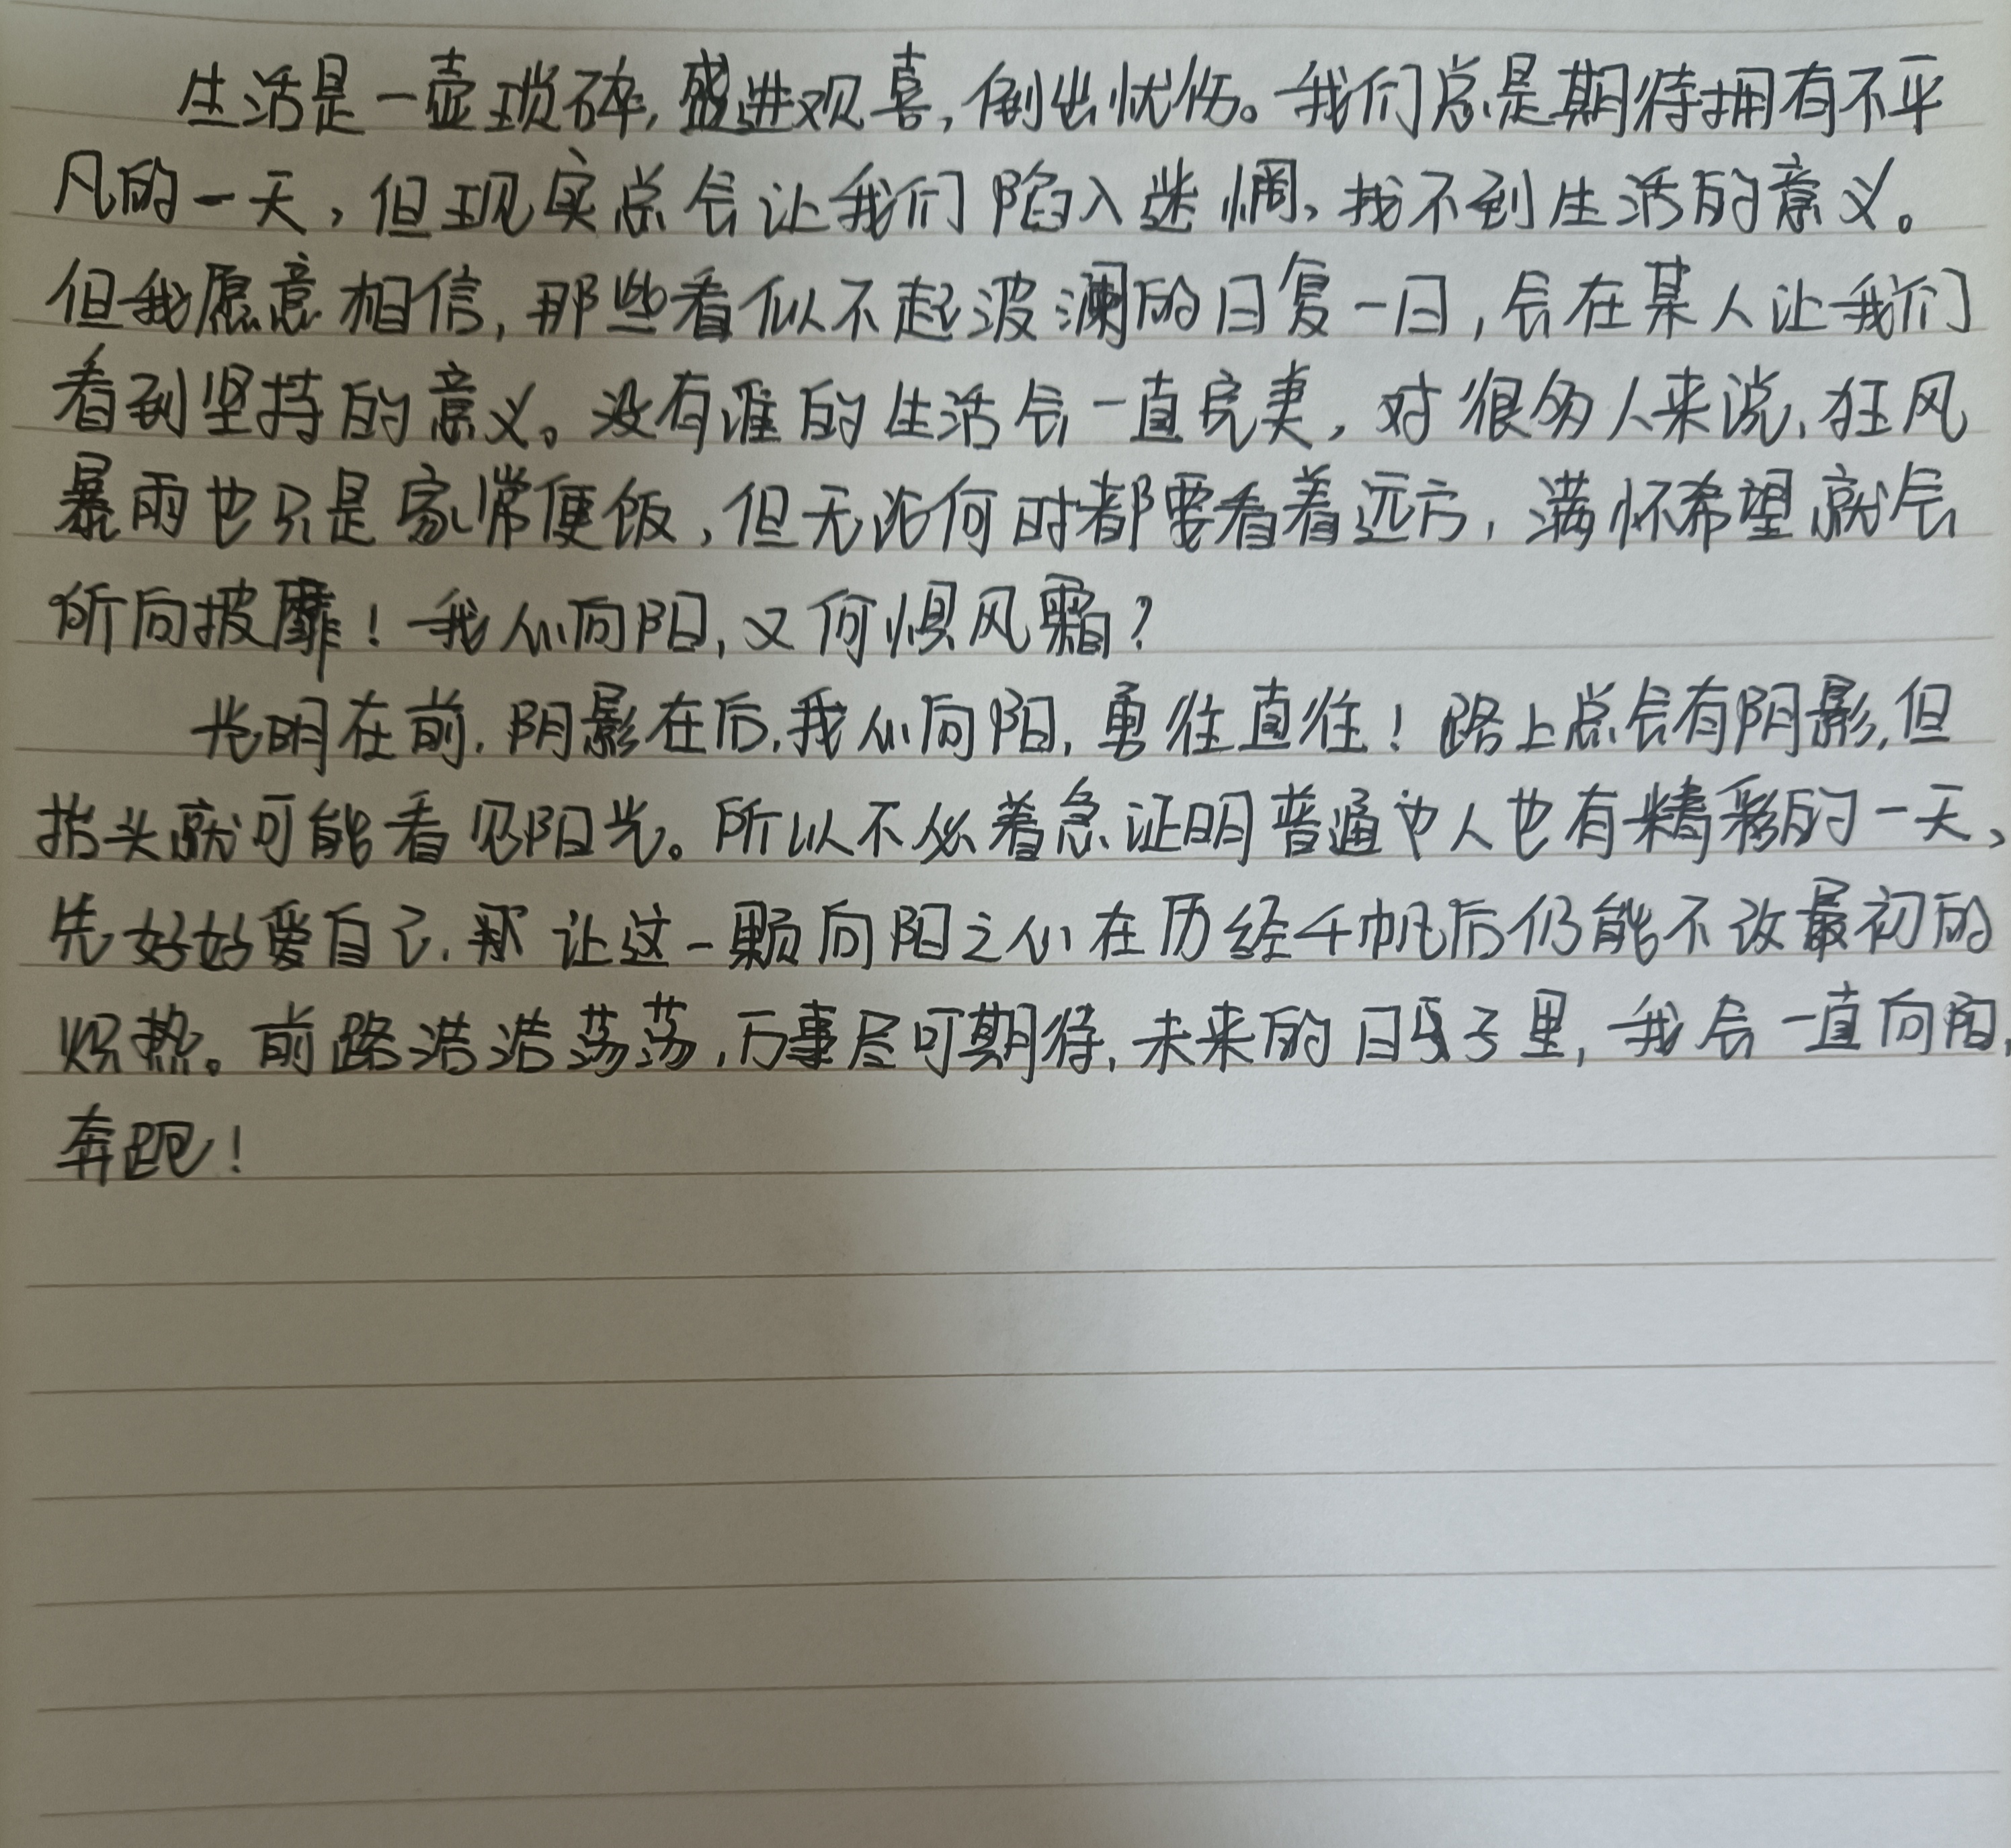 生活是一壶琐碎,盛进观喜,倒出忧伤。我们总是期待拥有不平
凡的一天,但现实总会让我们陷入迷惘,找不到生活的意义。
但我愿意相信,那些看似不起波澜的日复一日,会在某人让我们
看到坚持的意义。没有谁的生活会一直完美,对很多人来说,狂风
暴雨也只是家常便饭,但无论何时都要看着远方,满怀希望就会
所向披靡!我心向阳,又何惧风霜?
光明在前,阴影在后,我心向阳,勇往直往!路上总会有阴影,但
抬头就可能看见阳光。所以不必着急证明普通人也有精彩的一天,
先好好爱自己,让这一颗向阳之心在历经千帆后仍能不改最初的
炽热。前路浩浩荡荡,万事尽可期待,未来的日子里,我会一直向阳,
奔跑!